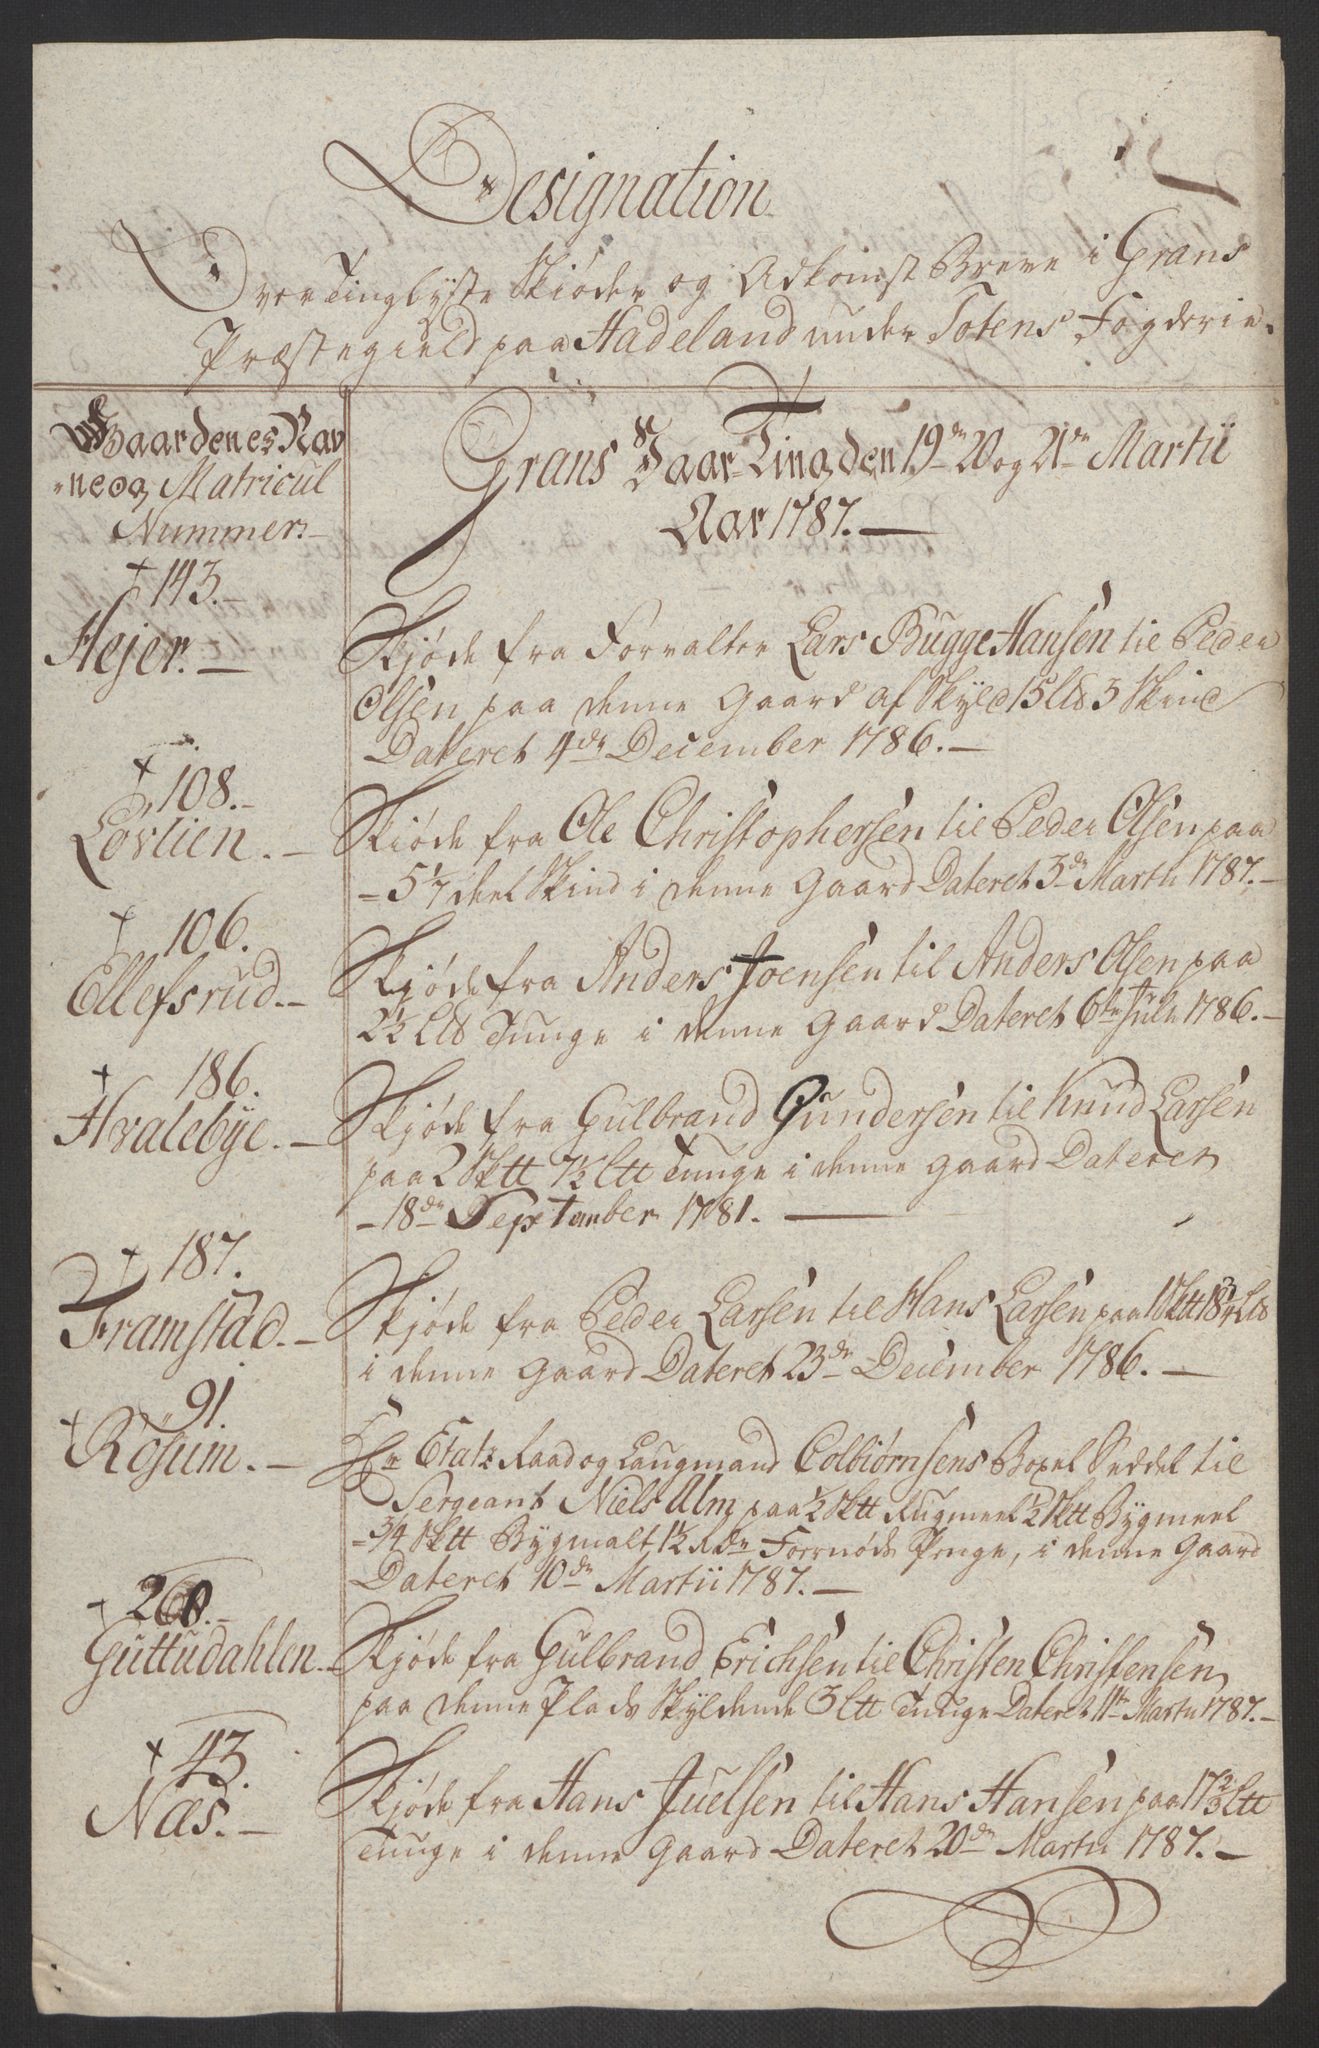 Designation
Over Tinglyste Skiøder og Adkomst Breve i Grans
Præstegield paa Hadeland under Totens Fogderie.
Gaardenes Nav
-ne og Matricul
Nummer.
Grans Vaar-Ting den 19de 20 og 21de Martii
Aar 1787.
+ 143.
Hejer.
Skjøde fra Forvalter Lars Bugge Hansen til Peder
Olsen paa denne Gaard af Skyld 15 L℔ 3 Skind
Dateret 4de December 1786.
+ 108.
Løvlien.
Skiøde fra Ole Christophersen til Peder Olsen paa
5 1/7 deel Skind i denne Gaard Dateret 3de Martii 1787.
+ 106.
Ellefsrud.
Skjøde fra Anders Joensen til Anders Olsen paa
2½ L℔ Tunge i denne Gaard Dateret 6te Julii 1786.
+ 186.
Hvalebye.
Skjøde fra Gulbrand Gundersen til Knud Larsen
paa 2 Sktt 7½ Ltt Tunge i denne Gaard Dateret
18de September 1781.
+ 187.
Framstad.
Skjøde fra Peder Larsen til Hans Larsen paa 1 Sktt 18¾ L℔
i denne Gaard Dateret 23de December 1786.
+ 91.
Røsum.
Hr Etatz Raad og Laugmand Colbiørnsens Bopel Seddel til
Sergeant Niels Alm paa ½ Sktt Rugmeel ½ Sktt Bygmeel
3/4 Sktt Bygmalt 1½ Rdr Foernøds Penge, i denne Gaard
Dateret 10de Martii 1787.
+ 260.
Guttudahlen.
Skjøde fra Gulbrand Erichsen til Christen Christensen
paa denne Plads Skyldende 3 Ltt Tunge Dateret 11te Martii 1787.
+ 43.
Næs.
Skjøde fra Hans Juelsen til Hans Hansen paa 17⅔ Ltt
Tunge i denne Gaard Dateret 20de Martii 1787.